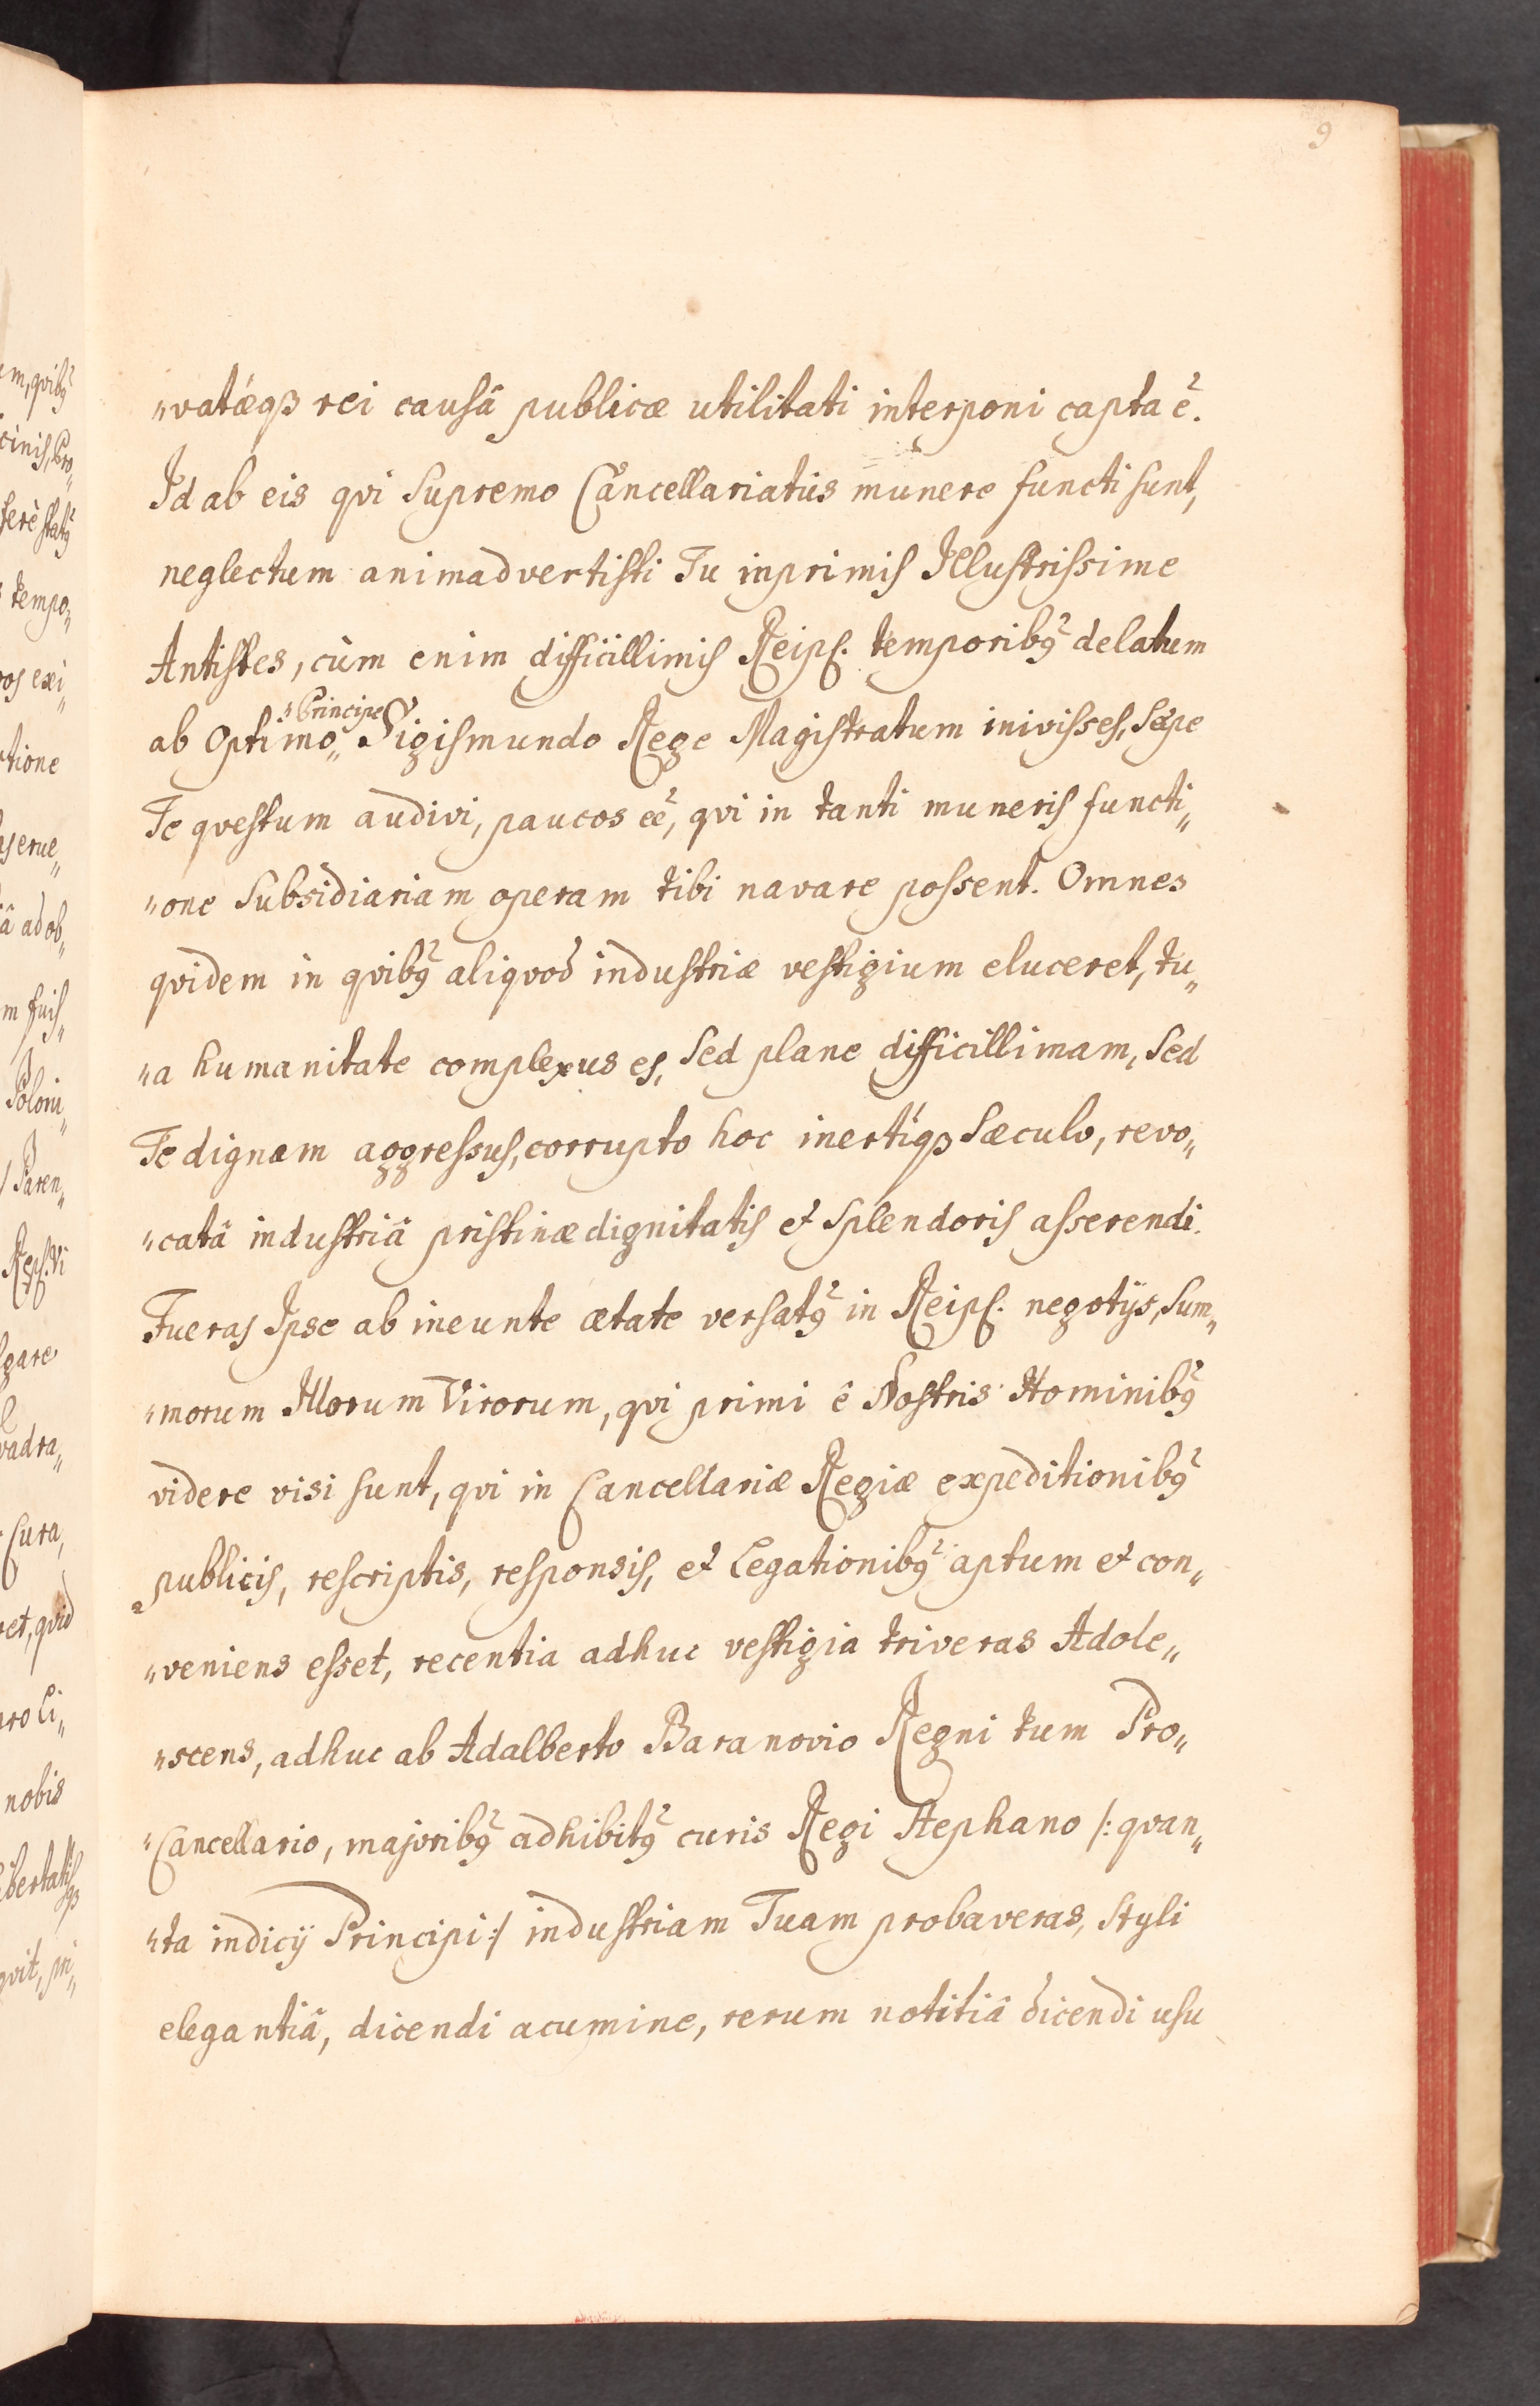 9
„vatæq3 rei causâ publicæ utilitati interponi capta ē.
Id ab eis qvi Supremo Cancellariatûs munere functi sunt,
neglectum animadvertisti Tu inprimis Illustrissime
Antistes, cùm enim difficillimis Reips. temporibq delatum
„Principe
ab Optimo„ Sigismundo Rege Magistratum inivisses, Sæpe
Te qvestum audivi, paucos eē, qvi in tanti muneris functi„
„one Subsidiariam operam tibi navare possent. Omnes
qvidem in qvibq aliqvod industriæ vestigium eluceret, tu„
„a humanitate complexus es, Sed plane difficillimam, Sed
Te dignam aggressus, corrupto hoc inertiq3 Sæculo, revo„
„catâ industriâ pristinæ dignitatis et Splendoris asserendi.
Fueras Ipse ab ineunte ætate versatq in Reips. negotijs, Sum„
„morum Illorum Virorum, qvi primi ê Nostris Hominibq
videre visi sunt, qvi in Cancellariæ Regiæ expeditionibq
publicis, rescriptis, responsis, et Legationibq aptum et con„
„veniens esset, recentia adhuc vestigia triveras Adole„
„scens, adhuc ab Adalberto Baranovio Regni tum Pro„
„Cancellario, majoribq adhibitq curis Regi Stephano /: qvan„
„ta indicij Principi :/ industriam Tuam probaveras, Styli
elegantiâ, dicendi acumine, rerum notitiâ dicendi usu
um, qvibq
cinis, Pro„
ferè statq
tempo„
vos exi„
tione
serue„
â ad ob„
m fuis„
Poloni„
Paren„
Reps. Vi
gare
vadra„
Cura,
ret, qvid
pro Li„
nobis
ibertatis
q3
qvit, pri„